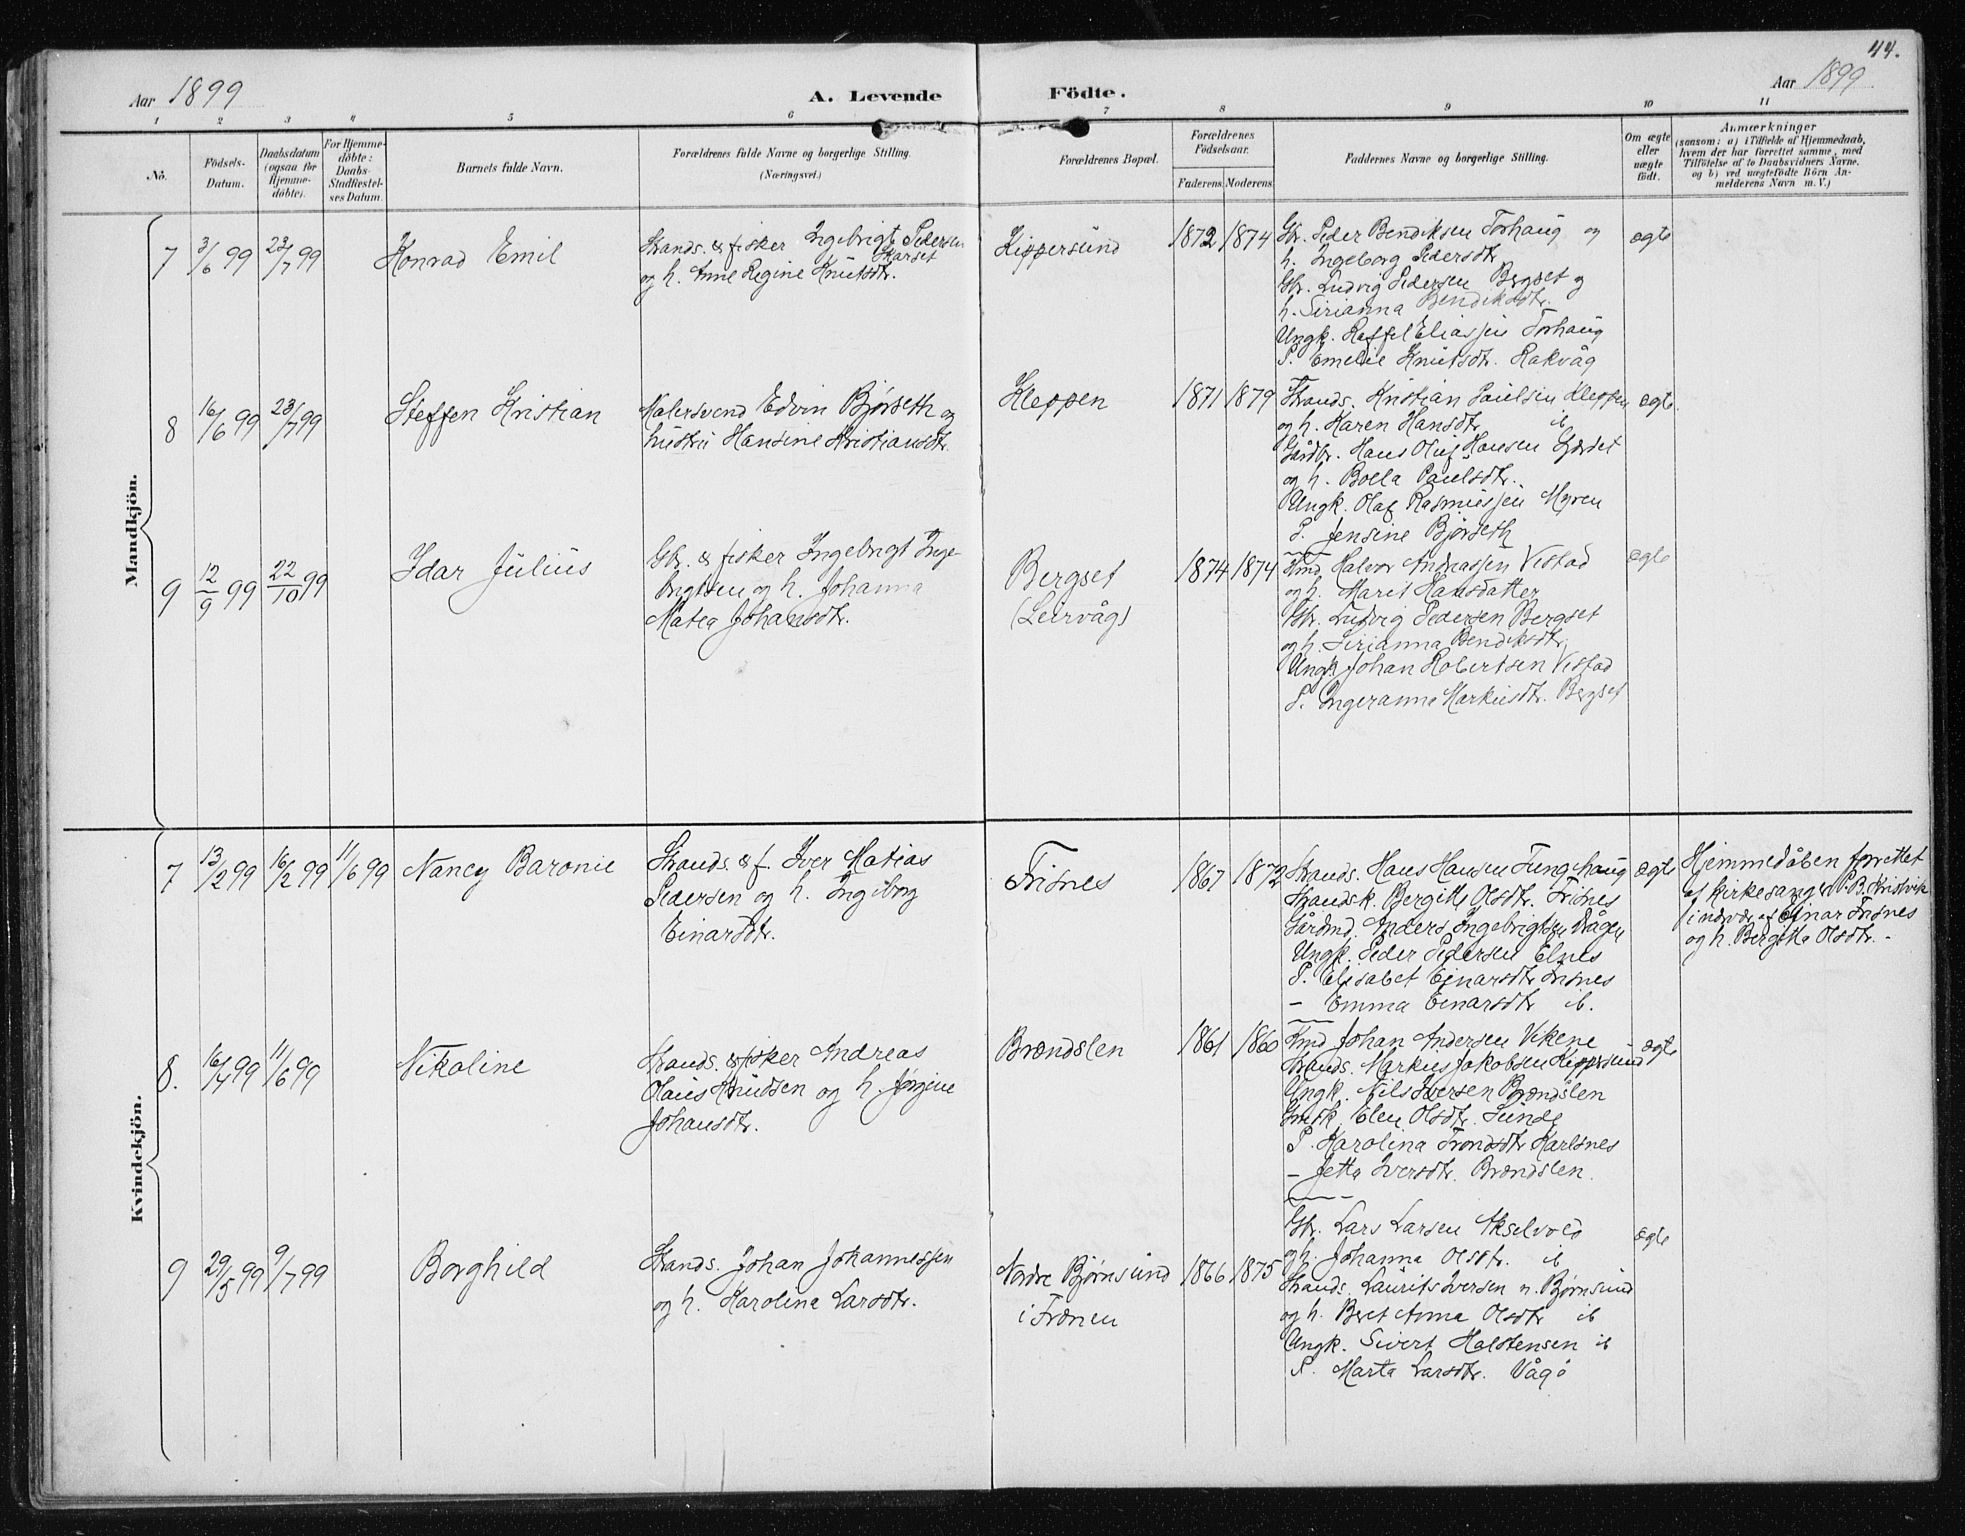 44.
Aar 1899
A. Levende Födte.
Aar 1899
1 2 3 4 5 6 7 8 9 10 11
No.
Födsels-
Datum.
Daabsdatum
(ogsaa for
Hjemme-
döbte).
For Hjemme-
döbte:
Daabs-
Stadfæstel-
ses Datum.
Barnets fulde Navn.
Forældrenes fulde Navne og borgerlige Stilling.
(Næringsvei.)
Forældrenes Bopæl.
Forældrenes
Födselsaar.
Faderens. Moderens.
Faddernes Navne og borgerlige Stilling.
Om ægte
eller
uægte
födt.
Anmærkninger
(saasom: a) i Tilfælde af Hjemmedaab,
hvem der har forrettet samme, med
Tilföielse af to Daabsvidners Navne,
og b) ved uægtefödte Börn An-
melderens Navn m. V.)
Mandkjön.
7 3/6 99 23/7 99
Konrad Emil
Strands. & fisker Ingebrigt Pedersen
Harset
og h. Anne Regine Knutsdtr.
Kippersund
1872 1874
Gbr. Peder Bendiksen Torhaug og
h. Ingeborg Pedersdtr
Gbr. Ludvig Pedersen Bergset og
h. Sirianna Bendiksdtr.
Ungk. Roffel Eliassen Torhaug
P. Emelie Knutsdtr. Rakvåg
ægte
8 16/6 99 23/7 99
Steffen Kristian
Malersvend Edvin Bjørseth og
hustru Hansine Kristiansdtr.
Kleppen
1871 1879
Strands. Kristian Paulsen Kleppen
og h. Karen Hansdtr ib
Gårdbr. Hans Oluf Hansen Gjærdet
og h. Bolla Paulsdtr.
Ungk. Olaf Rasmussen Myren
P. Jensine Bjørseth
ægte
9 12/9 99 22/10 99
Idar Julius
Gbr. & fisker Ingebrigt Inge-
brigtsen og h. Johanna
Matea Johansdtr.
Bergset
(Leirvåg)
1874 1874
Kmd Halvor Andreassen Vestad
og h. Marit Hansdatter
Gbr. Ludvig Pedersen Bergset
og h. Sirianna Bendiksdtr.
Ungk. Johan Robertsen Vestad
P. Ingeranna Markusdtr. Bergset
ægte
Kvindekjön.
7 13/2 99 16/2 99 11/6 99
Nancy Baronie
Strands. & f. Iver Matias
Pedersen og h. Ingeborg
Einarsdtr.
Frisnes
1867 1872
Strands. Hans Hansen Tunghaug
Strandsk. Bergitte Olsdtr. Frisnes
Gårdmd. Anders Ingebrigtsen Vågen
Ungk. Peder Pedersen Elnes
P. Elisabet Ejnarsdtr Frisnes
– Emma Einarsdtr ib.
ægte
Hjemmedåben forrettet
af kirkesanger P. B. Kristvik
i nærvær af Ejnar Frisnes
og h. Bergitta Olsdtr. -
8. 16/4 99 11/6 99
Nikoline
Strands. & fisker Andreas
Olaus Knudsen og h. Jørgine
Johansdtr.
Brændslen
1861 1860
Kmd Johan Andersen Vikene
Strands. Markus Jakobsen Kippersund
Ungk. Nils Iversen Brændslen
Gmdk. Elen Olsdtr. Sunde
P. Karolina Trondsdtr Karlsnes
– Jetta Iversdtr. Brændslen.
ægte
9 29/5 99 9/7 99
Borghild
Strands. Johan Johannessen
og h. Karolina Larsdtr.
Nordre Bjørnsund
i Frænen
1866 1875
Gbr. Lars Larsen Akselvold
og h. Johanna Olsdtr. ib
Strands. Laurits Iversen n. Bjørnsund
og h. Beret Anna Olsdtr ib
Ungk. Sivert Halstensen ib
P. Marta Larsdtr. Vågø
ægte